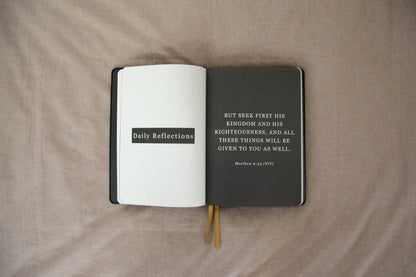 Daily Reflections
BUT SEEK FIRST HIS
KINGDOM AND HIS
RIGHTEOUSNESS, AND ALL
THESE THINGS WILL BE
GIVEN TO YOU AS WELL.
Matthew 6:33 (NIV)